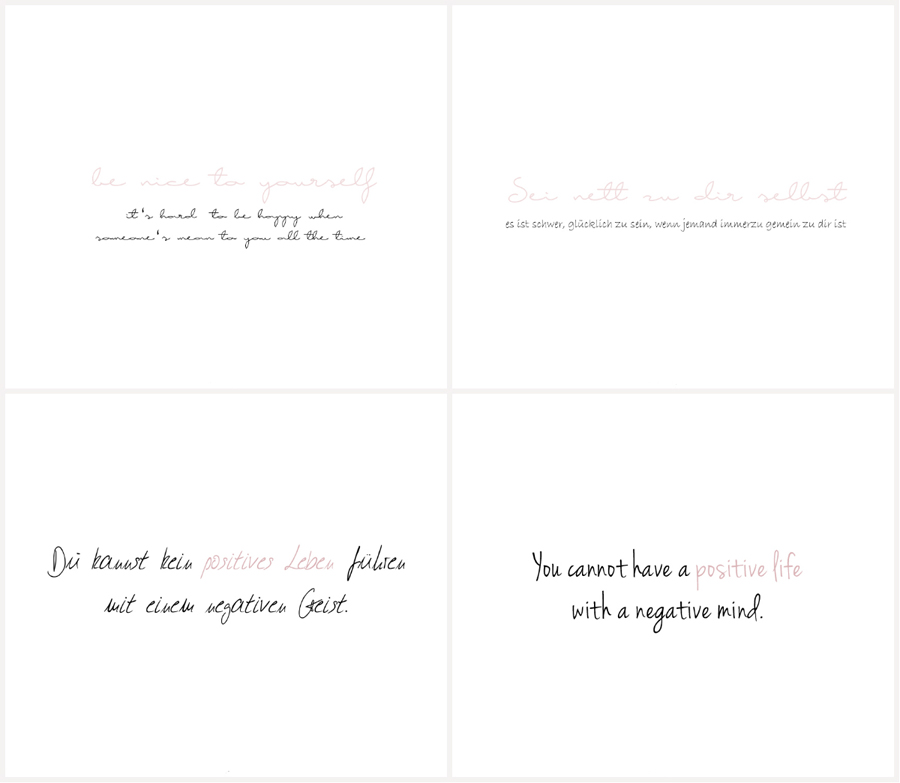 be nice to yourself
it's hard to be happy when
someone's mean to you all the time
Sei nett zu dir selbst
es ist schwer, glücklich zu sein, wenn jemand immerzu gemein zu dir ist
Du kannst kein positives Leben führen
mit einem negativen Geist.
You cannot have a positive life
with a negative mind.